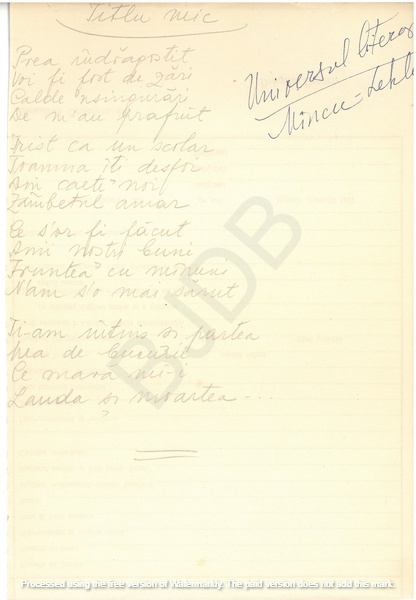 Titlu mic
Universul literar
Mincu - Lehliu
Prea îndrăgostit
Voi fi fost de zări
Calde 'nsingurări
De m'au prăfuit
Trist ca un școlar
Toamna îți desfoi
Din caete noi
Zâmbetul amar
Ce s'or fi făcut
Anii noștri buni
Fruntea cu minuni
N'am s'o mai sărut
Ți-am întins și partea
Mea de bucurie
Ce mară mi-i
Lauda și moartea ....
BJDB
Processed using the free version of Watermarkly. The paid version does not add this mark.